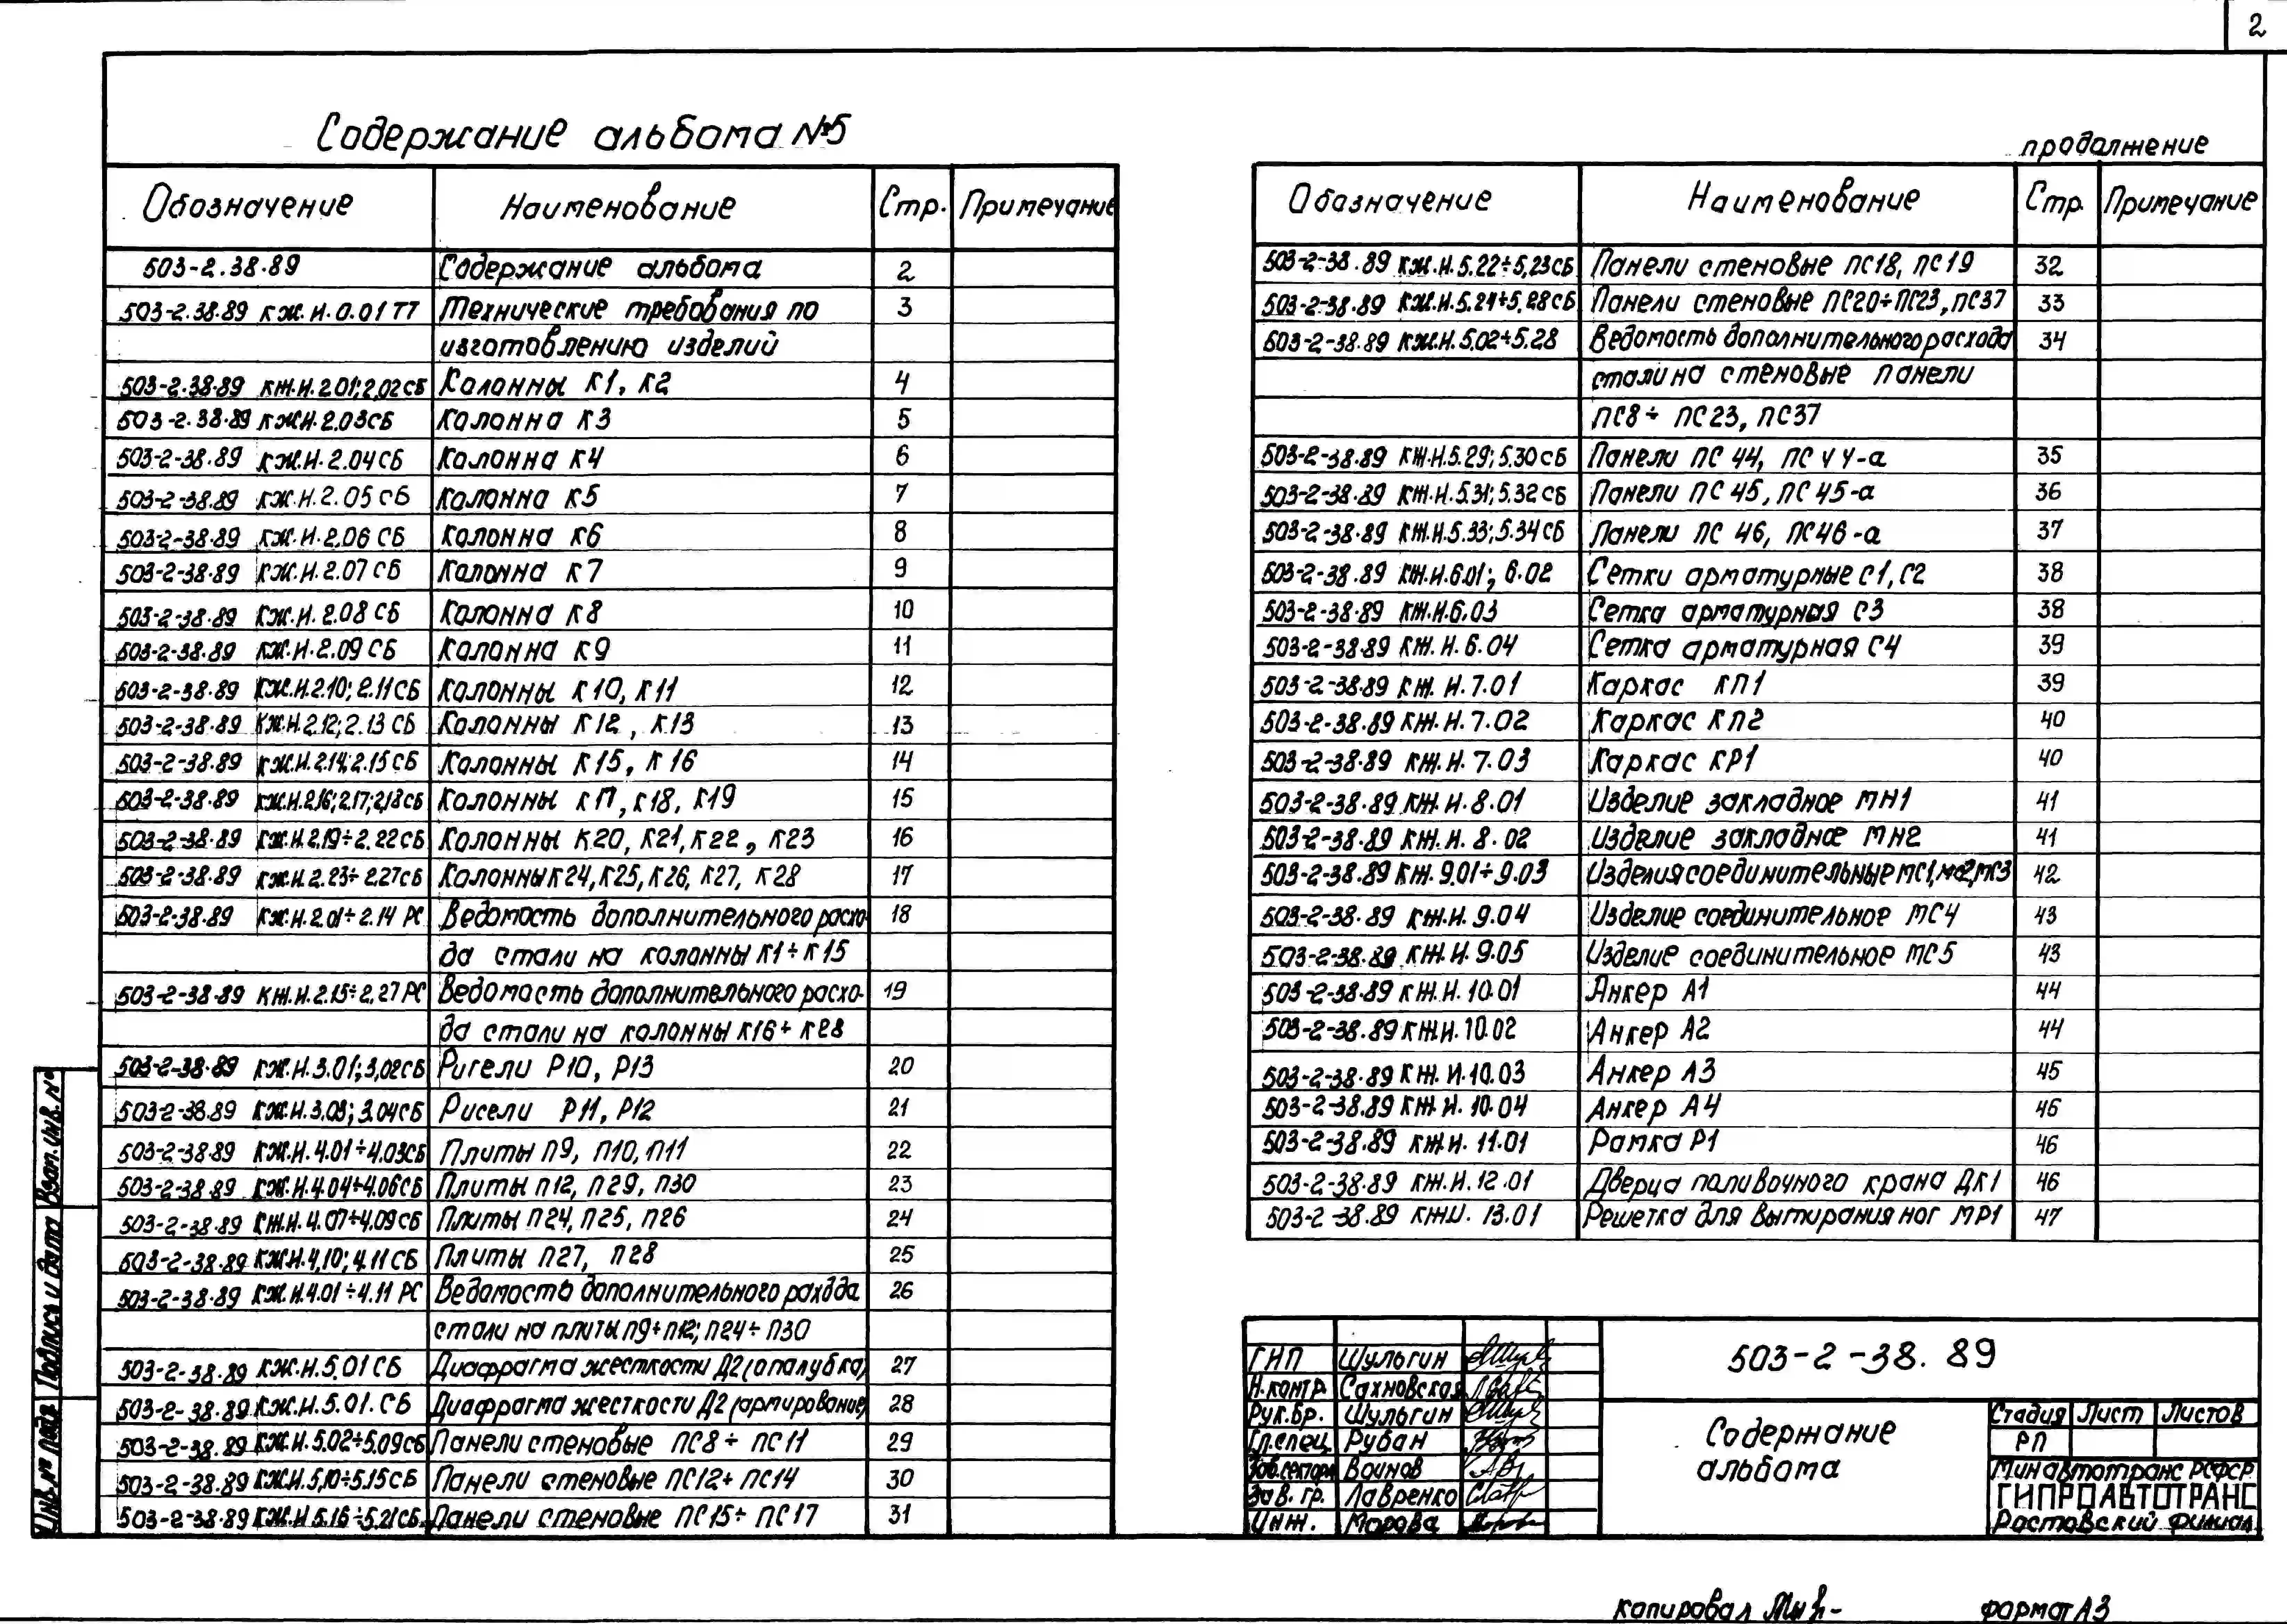 2
Содержание альбома №5
Обозначение Наименование Стр. Примечание
503-2.38.89 Содержание альбома 2
503-2.38.89 КЖ.И.0.01 ТТ Технические требования по 3
изготовлению изделий
503-2.38.89 КЖ.И.2.01; 2.02СБ Колонны К1, К2 4
503-2.38.89 КЖИ.2.03СБ Колонна К3 5
503-2-38.89 КЖ.И.2.04СБ Колонна К4 6
503-2-38.89 КЖ.И.2.05СБ Колонна К5 7
503-2-38.89 КЖ.И.2.06 СБ Колонна К6 8
503-2-38.89 КЖ.И.2.07 СБ Колонна К7 9
503-2-38.89 КЖ.И.2.08 СБ Колонна К8 10
503-2-38.89 КЖ.И.2.09 СБ Колонна К9 11
503-2-38.89 КЖ.И.2.10; 2.11СБ Колонны К10, К11 12
503-2-38.89 КЖ.И.2.12; 2.13 СБ Колонны К12, К13 13
503-2-38.89 КЖ.И.2.14; 2.15СБ Колонны К15, К16 14
503-2-38.89 КЖ.И.2.16; 2.17; 2.18СБ Колонны К17, К18, К19 15
503-2-38.89 КЖ.И.2.19÷2.22СБ Колонны К20, К21, К22, К23 16
503-2-38.89 КЖ.И.2.23÷2.27СБ Колонны К24, К25, К26, К27, К28 17
503-2-38.89 КЖ.И.2.01÷2.14 РС Ведомость дополнительного расхо- 18
да стали на колонны К1÷К15
503-2-38.89 КЖ.И.2.15÷2.27РС Ведомость дополнительного расхо- 19
да стали на колонны К16÷К28
503-2-38.89 КЖ.И.3.01; 3.02СБ Ригели Р10, Р13 20
503-2-38.89 КЖ.И.3.03; 3.04СБ Рисели Р11, Р12 21
503-2-38.89 КЖ.И.4.01÷4.03СБ Плиты П9, П10, П11 22
503-2-38.89 КЖ.И.4.04÷4.06СБ Плиты П12, П29, П30 23
503-2-38.89 КЖ.И.4.07÷4.09СБ Плиты П24, П25, П26 24
503-2-38.89 КЖ.И.4.10; 4.11СБ Плиты П27, П28 25
503-2-38.89 КЖ.И.4.01÷4.11 РС Ведомость дополнительного рахода 26
стали на плиты П9÷П12; П24÷П30
503-2-38.89 КЖ.И.5.01СБ Диафрагма жесткости Д2 (опалубка) 27
503-2-38.89 КЖ.И.5.01.СБ Диафрагма жесткости Д2 (армирование) 28
503-2-38.89 КЖ.И.5.02÷5.09СБ Панели стеновые ПС8÷ПС11 29
503-2-38.89 КЖ.И.5.10÷5.15СБ Панели стеновые ПС12÷ПС14 30
503-2-38.89 КЖ.И 5.16÷5.21СБ Панели стеновые ПС15÷ПС17 31
продолжение
Обозначение Наименование Стр. Примечание
503-2-38.89 КЖ.И.5.22÷5.23СБ Панели стеновые ПС18, ПС19 32
503-2-38.89 КЖ.И.5.24÷5.28СБ Панели стеновые ПС20÷ПС23, ПС37 33
503-2-38.89 КЖ.И.5.02÷5.28 Ведомость дополнительного расхода 34
стали на стеновые панели
ПС8÷ПС23, ПС37
503-2-38.89 КЖ.И.5.29; 5.30СБ Панели ПС 44, ПС 44-а 35
503-2-38.89 КЖ.И.5.31; 5.32СБ Панели ПС 45, ПС 45-а 36
503-2-38.89 КЖ.И.5.33; 5.34СБ Панели ПС 46, ПС46-а 37
503-2-38.89 КЖ.И.6.01; 6.02 Сетки арматурные С1, С2 38
503-2-38.89 КЖ.И.6.03 Сетка арматурная С3 38
503-2-38.89 КЖ.И.6.04 Сетка арматурная С4 39
503-2-38.89 КЖ.И.7.01 Каркас КП1 39
503-2-38.89 КЖ.И.7.02 Каркас КП2 40
503-2-38.89 КЖ.И.7.03 Каркас КР1 40
503-2-38.89 КЖ.И.8.01 Изделие закладное МН1 41
503-2-38.89 КЖ.И.8.02 Изделие закладное МН2 41
503-2-38.89 КЖ.9.01÷9.03 Изделия соединительные МС1, МС2, МС3 42
503-2-38.89 КЖ.И.9.04 Изделие соединительное МС4 43
503-2-38.89 КЖ.И.9.05 Изделие соединительное МС5 43
503-2-38.89 КЖ.И.10.01 Анкер А1 44
503-2-38.89 КЖ.И.10.02 Анкер А2 44
503-2-38.89 КЖ.И.10.03 Анкер А3 45
503-2-38.89 КЖ.И.10.04 Анкер А4 46
503-2-38.89 КЖ.И.11.01 Рамка Р1 46
503-2-38.89 КЖ.И.12.01 Дверца поливочного крана ДК1 46
503-2-38.89 КЖИ.13.01 Решетка для вытирания ног МР1 47
ГИП Шульгин
Н.контр. Сахновская
Рук.бр. Шульгин
Гл.спец. Рубан
Зав.сектора Воинов
Зав. гр. Лавренко
Инж. Морова
503-2-38.89
Содержание
альбома
Стадия Лист Листов
РП
Минавтотранс РСФСР
ГИПРОАВТОТРАНС
Ростовский филиал
Инв.№ подл. Подпись и дата Взам.инв.№
копировал
формат А3